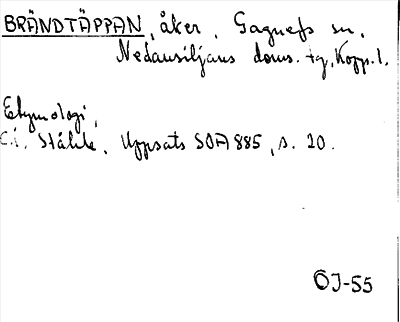 BRÄNDTÄPPAN, åker, Gagnefs sn,
Nedansiljans doms. tg, Kopp. l.
Etymologi,
C.i. Ståhle, Uppsats SOA 885, s. 20.
OJ-55